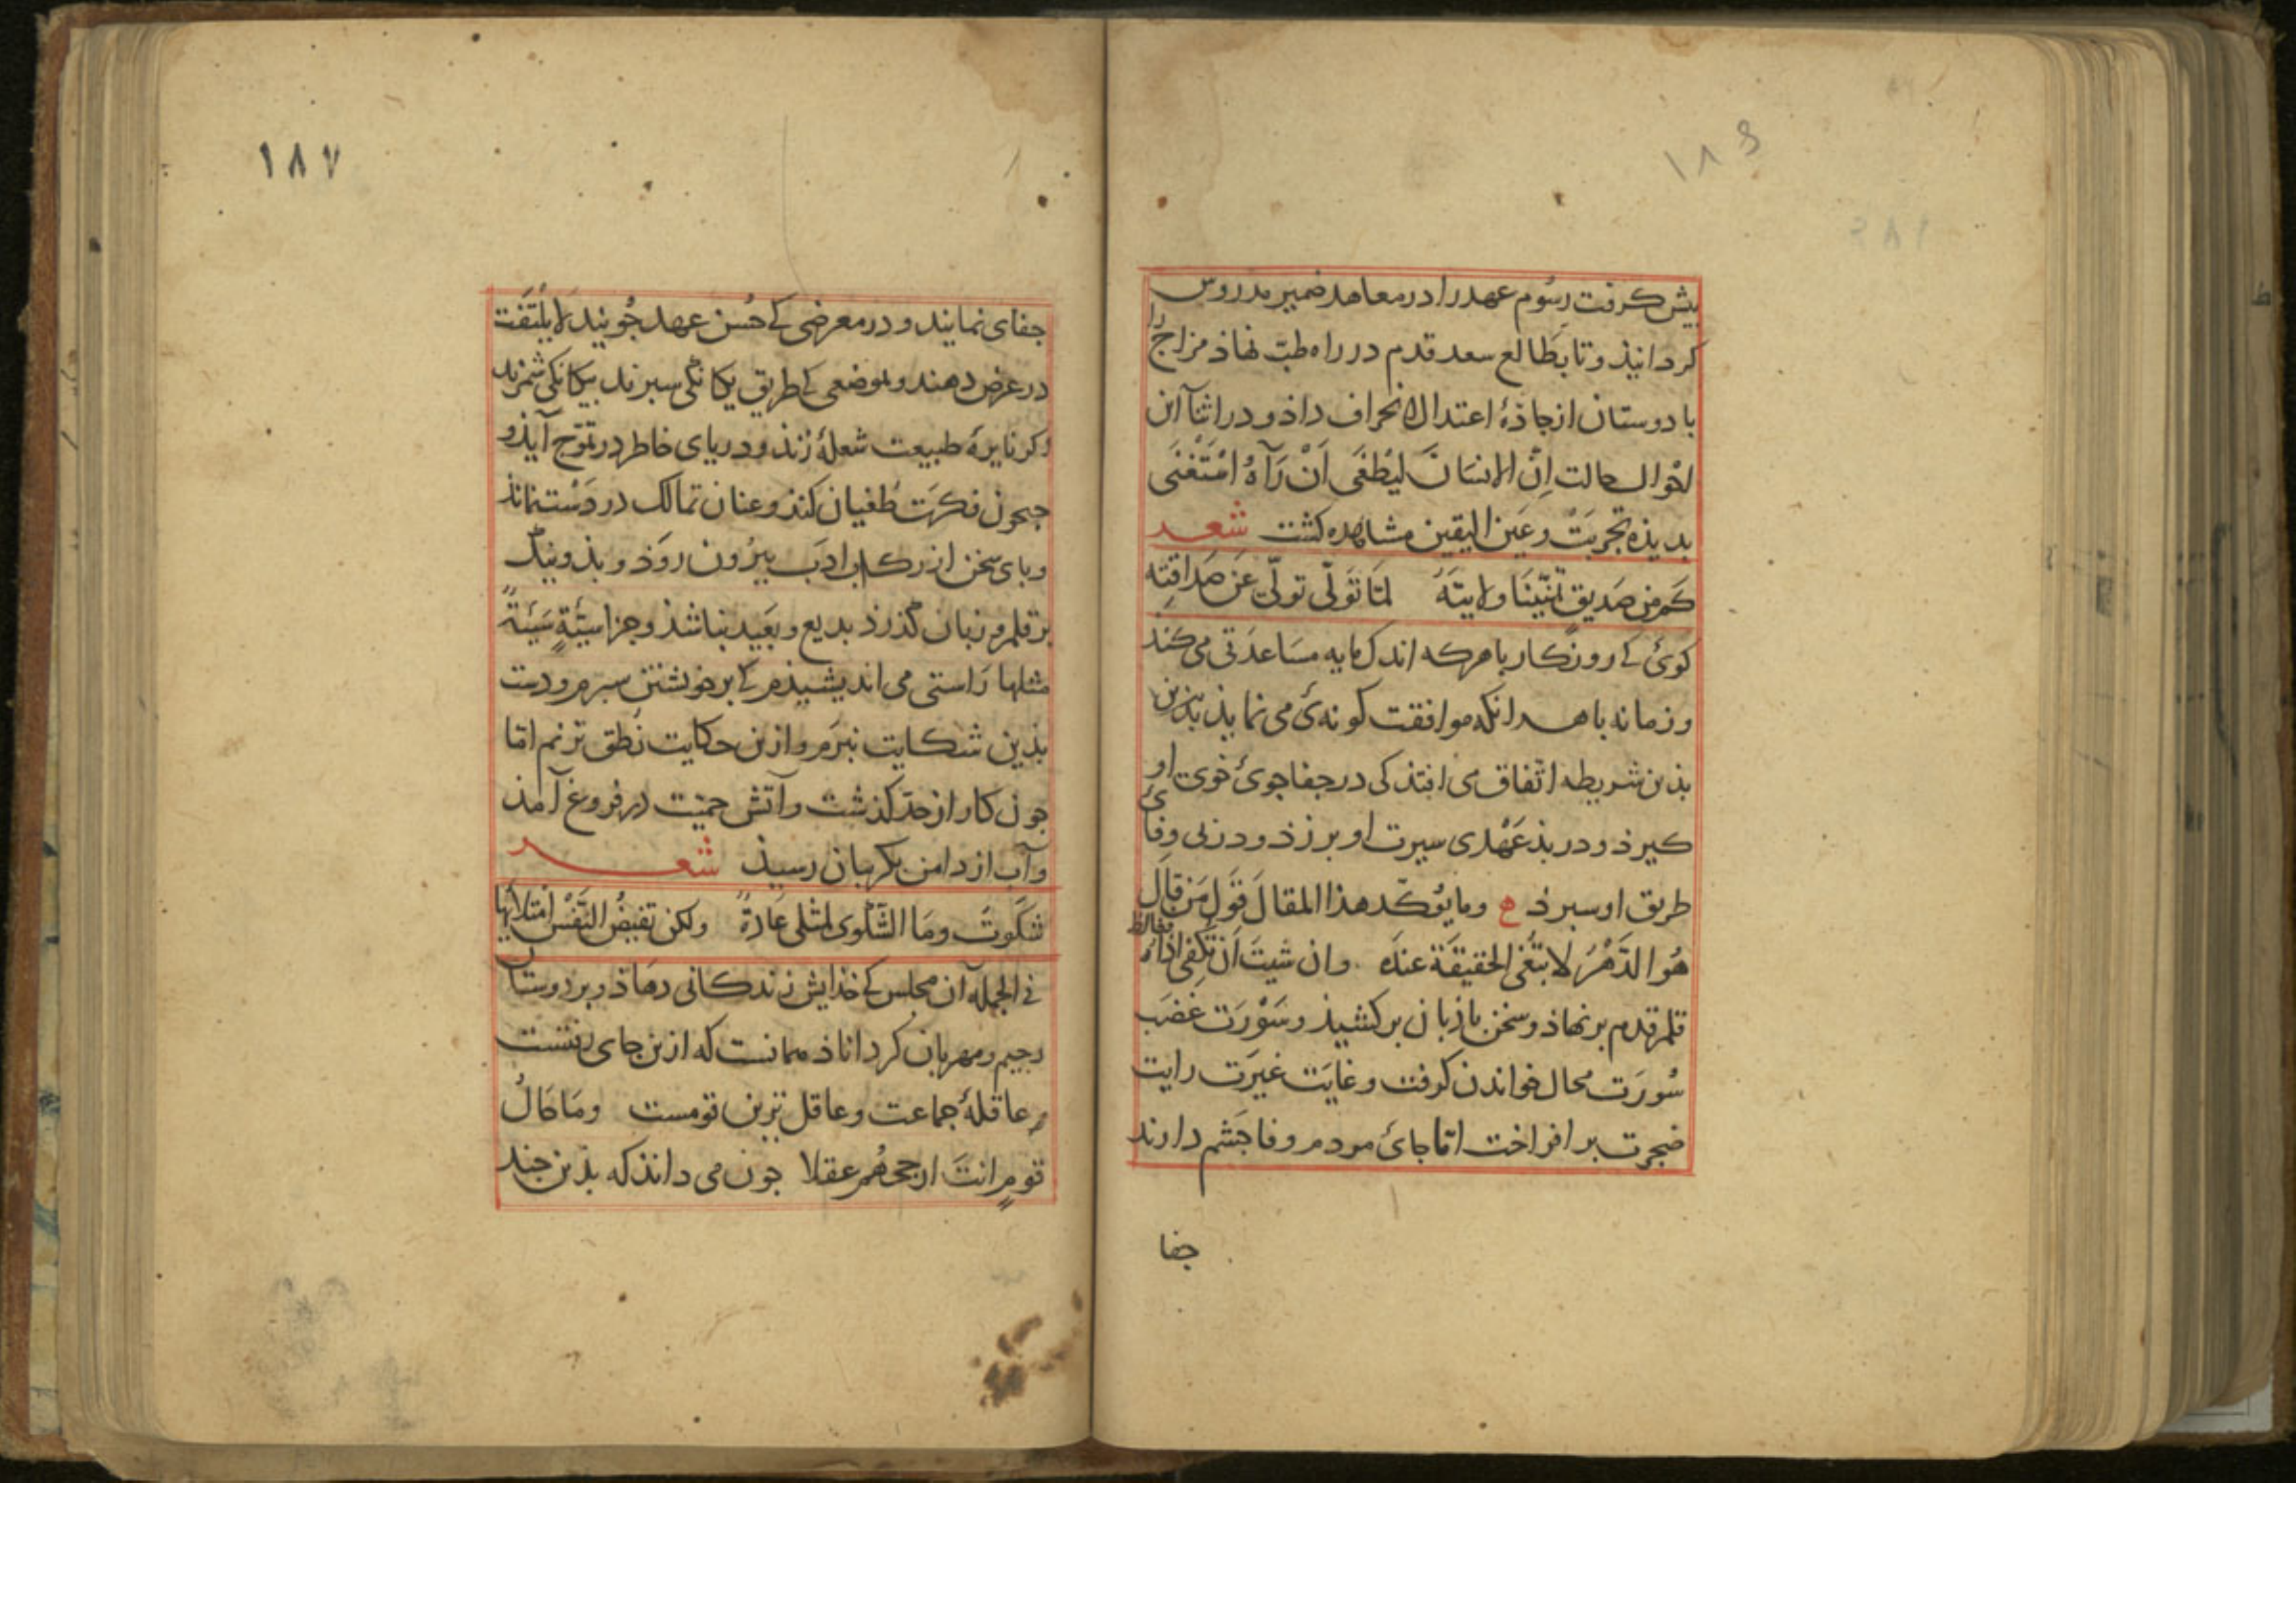 ۱۸۶
بیش کرفت رسُوم عهد را در معاهد ضمیر مدروس
کردانیذ و تا بطَالع سعد قدم در راه طبّ نهاذ مزاج را
با دوستان از جاذهٔ اعتدال انحراف داذ و در اثنآ این
احَوال حالت اِنَّ الانسَانَ لیَطْغَی اَنْ رَآهُ اسْتَغْنَی
بدیذه تجربَتْ و عَین الیقین مشاهده کشت شعر
کَم من صَدیقٍ تمنّینَا ولایتَهُ لمّا تَولّی تولّی عَن صَدَاقتِه
کوئ کے روزکار با هرکه اندک مایه مسَاعدَتی می کند
و زمانه با هر انکه موافقت کونه ئ می نمایذ بذین
بذین شریطه اتّفاق می افتذ کی در جفا جوئ خوی او
کیرذ و در بذ عَهْدی سیرت او برزذ و در بی وفائ
طریق او سبرذ ۰ ومایؤکّد هذا المقالَ قَولُ مَن قالَ
هُوَ الدَّهْرُ لا تبْغی الحقیقَة عندَه وان شیتَ اَن تکفی اذاهُ فغالط
قلم قدم برنهاذ و سخن باذبان برکشیذ و سَوْرَت غضَب
سُورَت محال خواندن کرفت و غایَت غیرَت رایت
ضجرت بر افراخت امّا جائ مردم وفا جشم دارند
جفا
۱۸۷
جفای نمایند و در معرضی کے حُسن عهد جُویند لایلْتَفت
در عرض دهند و بموضعی کے طریق یکانکی سبرند بیکانکی شمرند
اکر نایرهٔ طبیعت شعلهٔ زند و دریای خاطر در تموّج آیذ و
جیحون فکرت طُغیان کند و عنان تمالک در دَست نماند
و بای سخن از رکاب ادَب بیرُون روَذ و بذ و نیک
بر قلم و زبان کذرذ بدیع و بعَید نباشذ و جزا سیّئةٍ سَیّئةٌ
مثلها رَاستی می اندیشیذم کے بر خویشتن سبرم و دست
بذین شکایت نبرَم و ازین حکایت نُطق نزنم امّا
جون کار از حدّ کذشت و آتش حمیّت در فروغ آمذ
و آب از دامن بکریبان رسیذ شعر
شکَوتَ ومَا الشّکْوی لمثلی عَادةً ولکن تفیضُ النّفْسُ امْتلایها
فی الجمله آن مجلس کے خذایش زندکانی دهاذ و بر دوستان
رحیم و مهربان کرداناذ همانست که ازین جای رفتست
و عاقلهٔ جماعت و عاقل ترین قومست ومَا مَالُ
قومٍ انتَ ارجحُهُم عقلا جون می داند که بذین جند